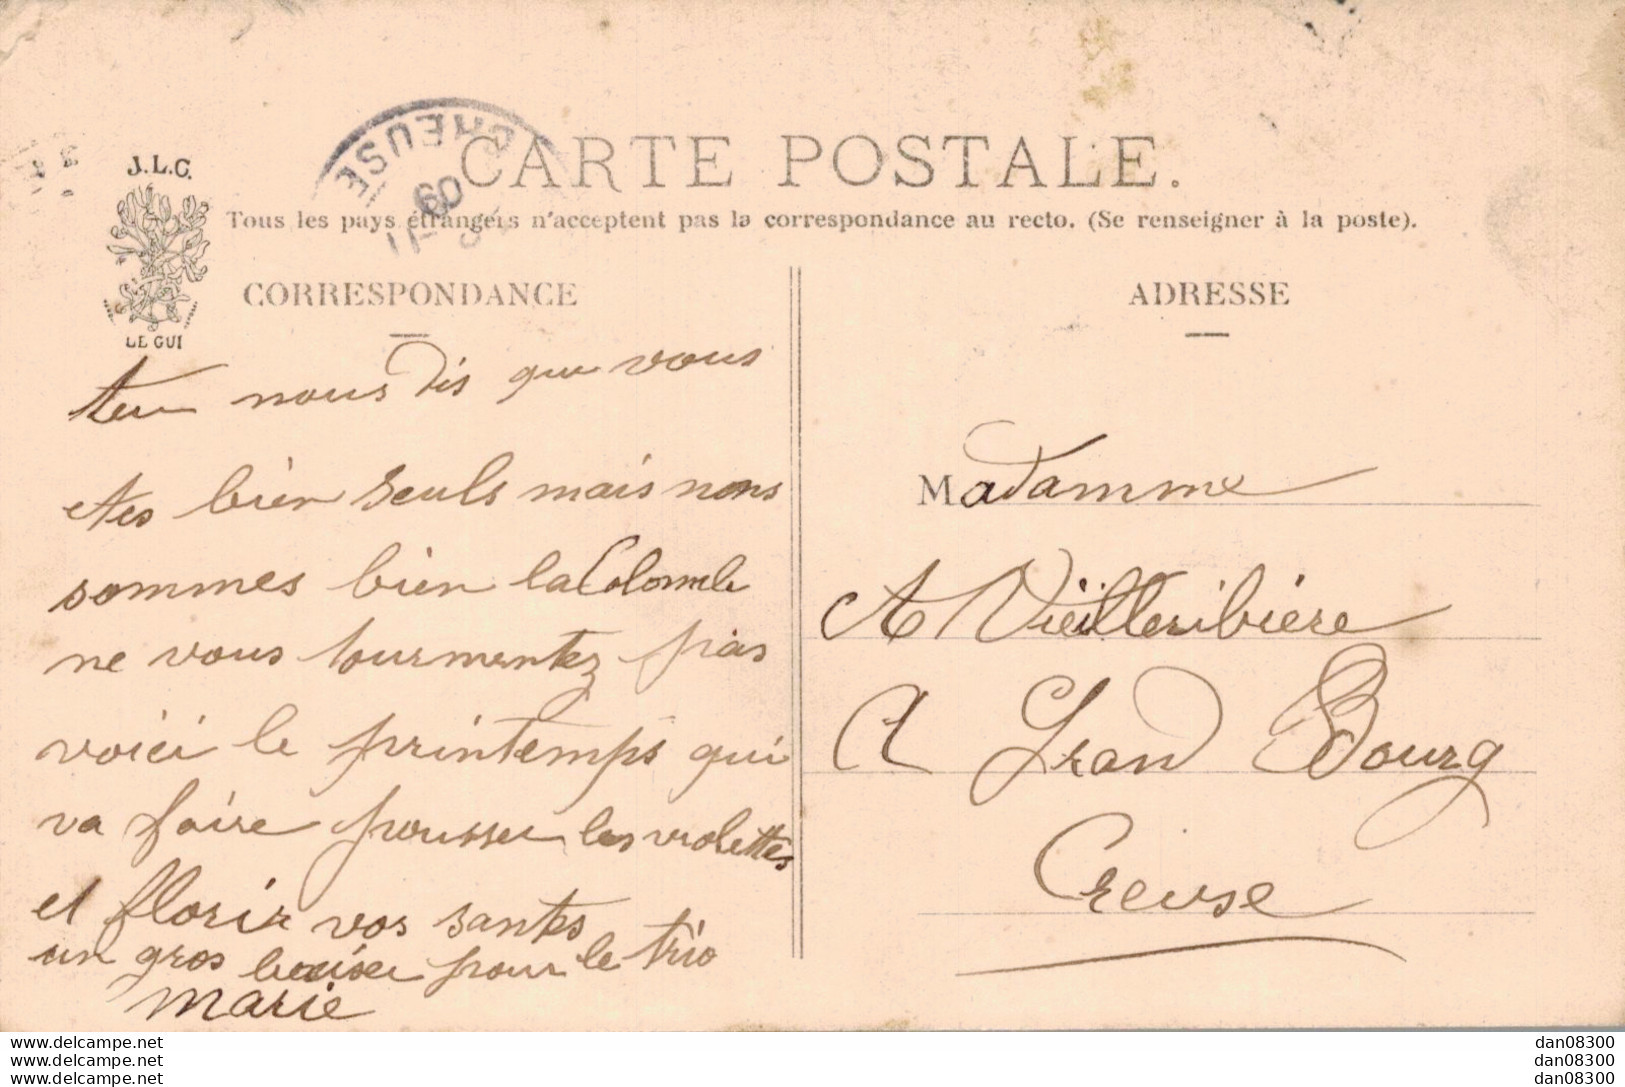 CREUSE
09
J.L.C.
LE GUI
CARTE POSTALE.
Tous les pays étrangers n'acceptent pas la correspondance au recto. (Se renseigner à la poste).
CORRESPONDANCE
tu nous dis que vous
êtes bien seuls mais nous
sommes bien la Colomb
ne vous tourmentez pas
voici le printemps qui
va faire pousser les violettes
et florir vos santes
un gros baiser pour le trio
marie
ADRESSE
Madamme
A Vieilleribière
A Grand Bourg
Creuse
www.delcampe.net
www.delcampe.net
www.delcampe.net
dan08300
dan08300
dan08300